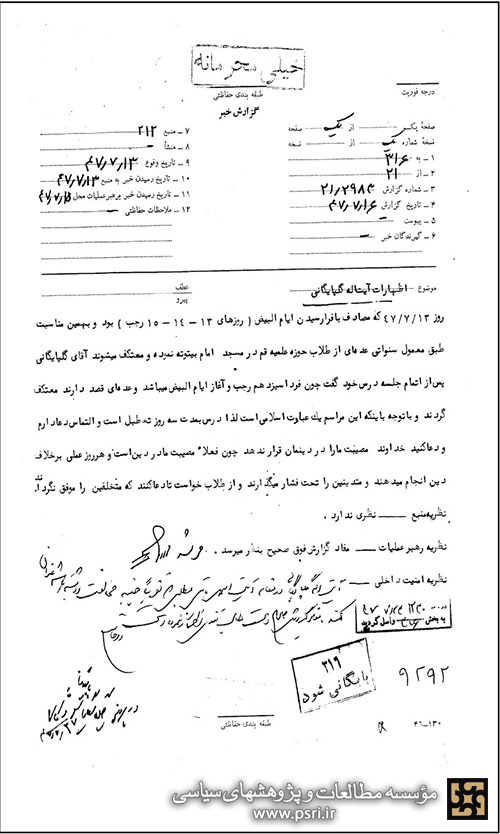 خیلی محرمانه
درجه فوریت
طبقه بندی حفاظتی
گزارش خبر
صفحه یک از یک صفحه
نسخه شماره یک از نسخه
۱ ـ به ۳۱۶
۲ ـ از ۲۱
۳ ـ شماره گزارش ۲۱/۲۹۸۴
۴ ـ تاریخ گزارش ۴۷/۷/۱۶
۵ ـ پیوست ـ
۶ ـ گیرندگان خبر ـ
۷ ـ منبع ۲۱۲
۸ ـ منشأ ـ
۹ ـ تاریخ وقوع ۴۷/۷/۱۳
۱۰ ـ تاریخ رسیدن خبر به منبع ۴۷/۷/۱۳
۱۱ ـ تاریخ رسیدن خبر برهبر عملیات محل ۴۷/۷/۱۵
۱۲ ـ ملاحظات حفاظتی ـ
موضوع ـ اظهارات آیت‌اله گلپایگانی
عطف
پیرو
روز ۴۷/۷/۱۳ که مصادف با فرا رسیدن ایام البیض (روزهای ۱۳ - ۱۴ - ۱۵ رجب) بود و بهمین مناسبت
طبق معمول سنواتی عده‌ای از طلاب حوزه علمیه قم در مسجد امام بیتوته نموده و معتکف میشوند آقای گلپایگانی
پس از اتمام جلسه درس خود گفت چون فردا سیزدهم رجب و آغاز ایام البیض میباشد و عده‌ای قصد دارند معتکف
گردند و با توجه باینکه این مراسم یک عبادت اسلامی است لذا درس بمدت سه روز تعطیل است و التماس دعا دارم
و دعا کنید خداوند مصیبت ما را در دینمان قرار ندهد چون فعلا مصیبت ما در دین است و هر روز عملی برخلاف
دین انجام میدهند و متدینین را تحت فشار میگذارند و از طلاب خواست تا دعا کنند که متخلفین را موفق نگرداند.
نظریه منبع ـ نظری ندارد.
نظریه رهبر عملیات ـ مفاد گزارش فوق صحیح بنظر میرسد.
نظریه امنیت داخلی ـ
۳۱۹
بایگانی شود
۹۲۹۲
طبقه بندی حفاظتی
۴۶-۱۳۰
مؤسسه مطالعات و پژوهشهای سیاسی
www.psri.ir